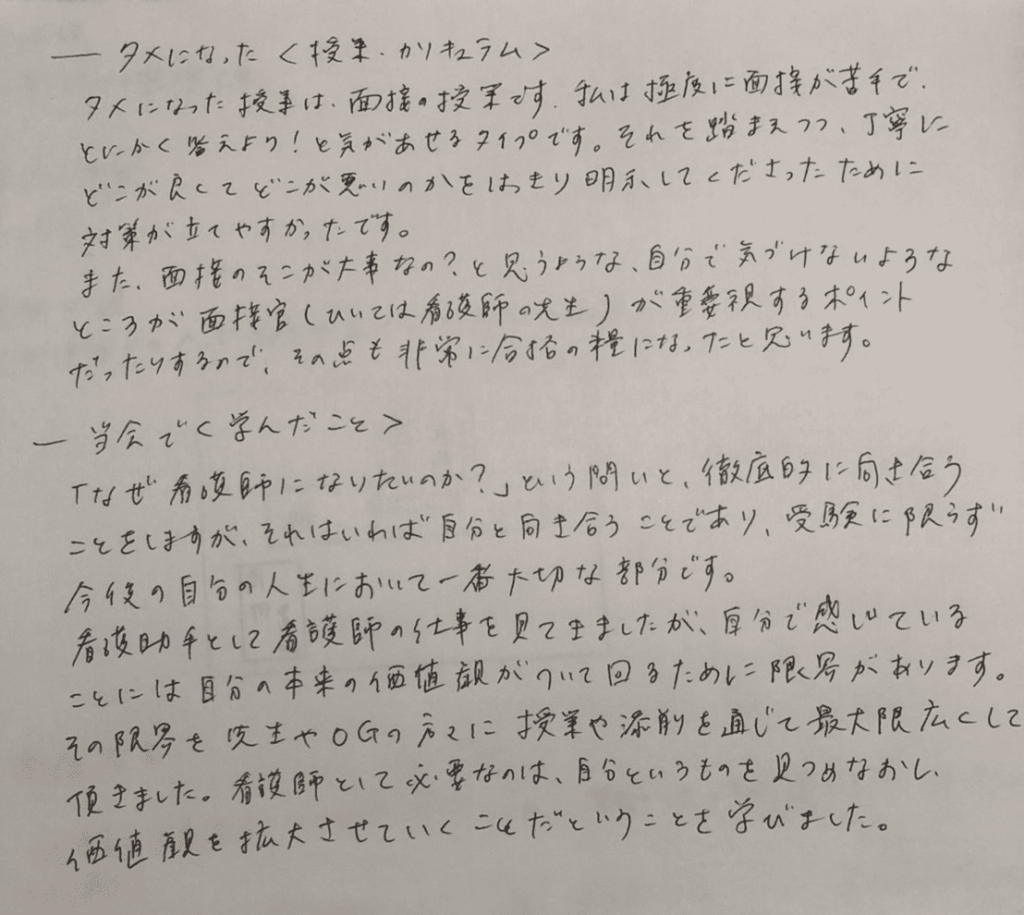 — タメになった<授業・カリキュラム>
タメになった授業は、面接の授業です。私は極度に面接が苦手で、
とにかく答えより!と気があせるタイプです。それを踏まえつつ、丁寧に
どこが良くてどこが悪いのかをはっきり明示してくださったために
対策が立てやすかったです。
また、面接のそこが大事なの?と思うような、自分で気づけないような
ところが面接官(ひいては看護師の先生)が重要視するポイント
だったりするので、その点も非常に合格の糧になったと思います。
— 当会で<学んだこと>
「なぜ看護師になりたいのか?」という問いと、徹底的に向き合う
ことをしますが、それはいわば自分と向き合うことであり、受験に限らず
今後の自分の人生において一番大切な部分です。
看護助手として看護師の仕事を見てきましたが、自分で感じている
ことには自分の本来の価値観がついて回るために限界があります。
その限界を先生やOGの方々に授業や添削を通じて最大限広くして
頂きました。看護師として必要なのは、自分というものを見つめなおし、
価値観を拡大させていくことだということを学びました。